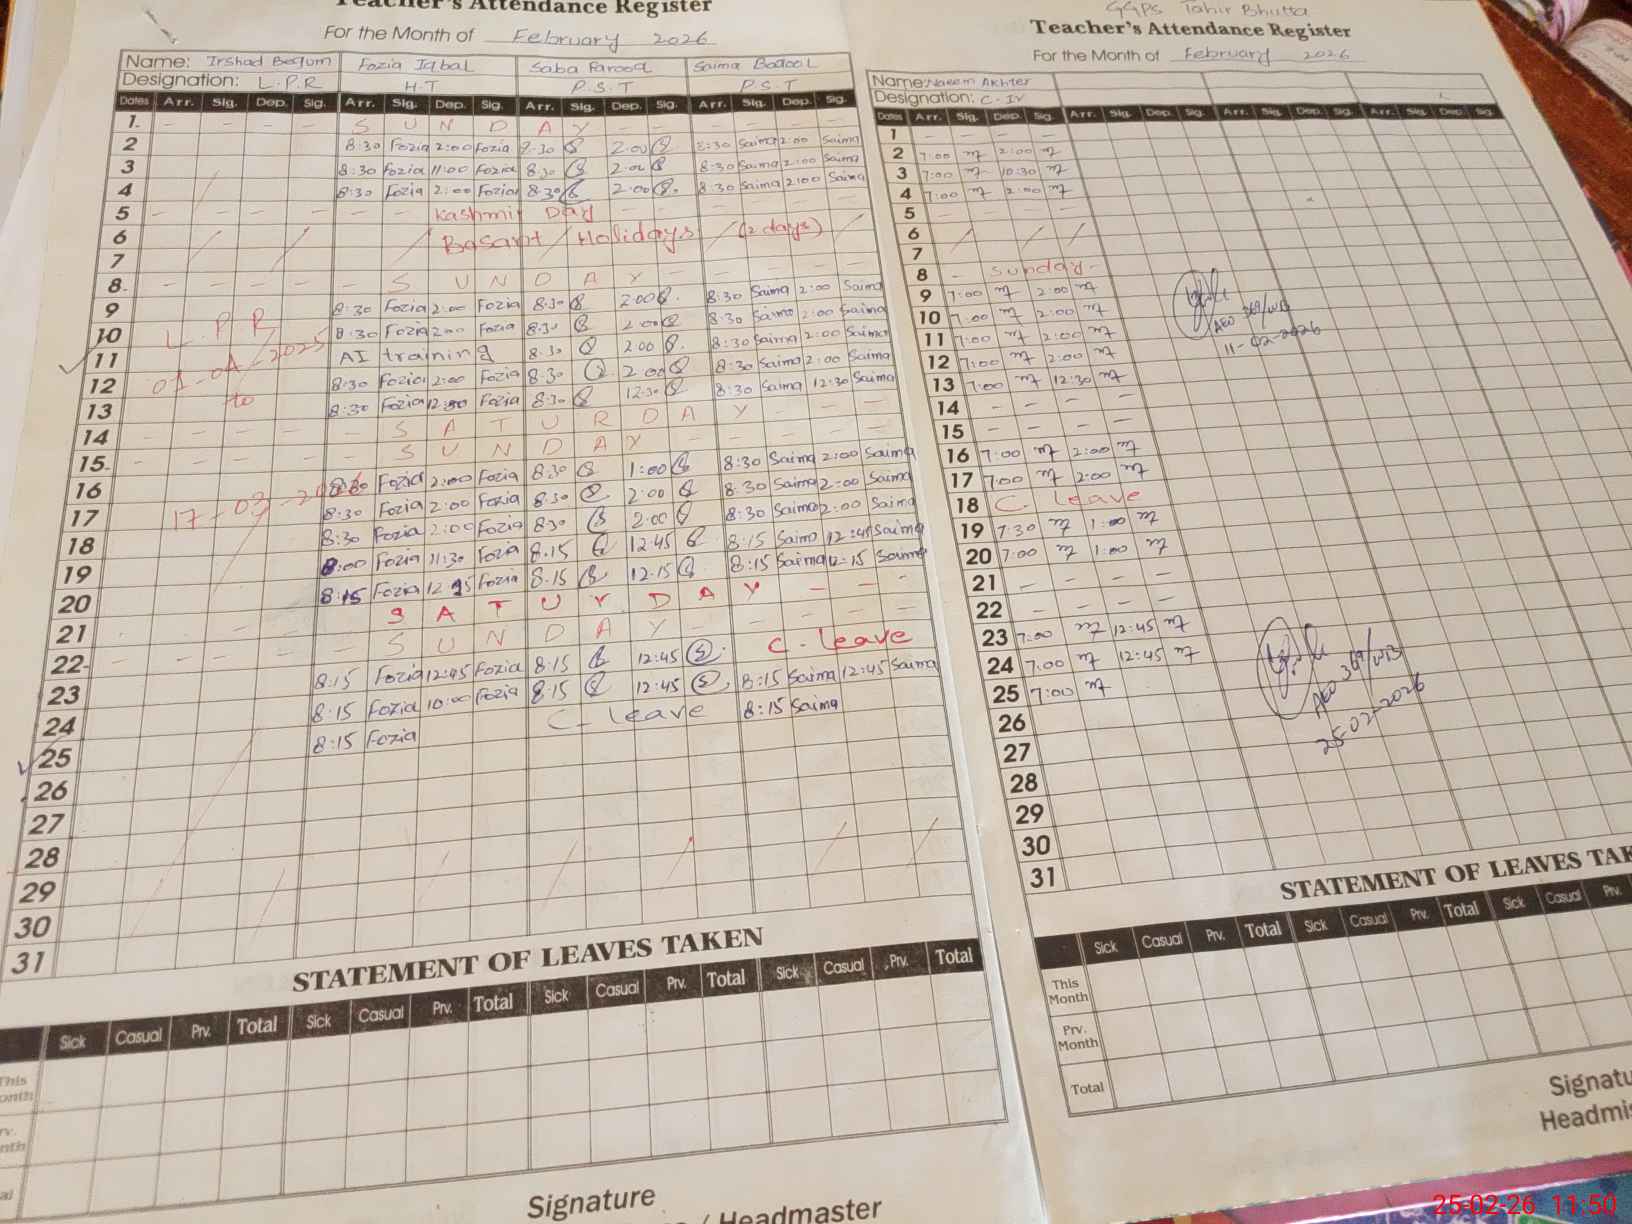 Teacher's Attendance Register
For the Month of February 2026
Name: Irshad Begum Fozia Iqbal Saba Farooq Saima Batool
Designation: L.P.R H.T P.S.T P.S.T
Dates Arr. Sig. Dep. Sig. Arr. Sig. Dep. Sig. Arr. Sig. Dep. Sig. Arr. Sig. Dep. Sig.
1. - - - - S U N D A Y - -
2 8:30 Fozia 2:00 Fozia 8.30 2.00 8:30 Saima 2:00 Saima
3 8:30 Fozia 11:00 Fozia 8.30 2.00 8:30 Saima 2:00 Saima
4 8:30 Fozia 2:00 Fozia 8.30 2.00 8:30 Saima 2:00 Saima
5 - - - - - - Kashmir Day - - - -
6 Basant Holidays (2 days)
7
8. - - - - - S U N D A Y - - - -
9 8:30 Fozia 2:00 Fozia 8:30 2.00 8:30 Saima 2:00 Saima
10 L.P.R 8:30 Fozia 2:00 Fozia 8.30 2.00 8:30 Saima 2:00 Saima
11 01-04-2025 AI training 8.30 2.00 8:30 Saima 2:00 Saima
12 to 8:30 Fozia 2:00 Fozia 8.30 2.00 8:30 Saima 2:00 Saima
13 8:30 Fozia 12:30 Fozia 8.30 12.30 8:30 Saima 12:30 Saima
14 - - - - - S A T U R D A Y - - -
15. - - - - - S U N D A Y - - - -
16 Fozia 2:00 Fozia 8.30 1:00 8:30 Saima 2:00 Saima
17 17-03- 8:30 Fozia 2:00 Fozia 8.30 2.00 8:30 Saima 2:00 Saima
18 8:30 Fozia 2:00 Fozia 8.30 2.00 8:30 Saima 2:00 Saima
19 8:00 Fozia 11:30 Fozia 8.15 12.45 8:15 Saima 12:45 Saima
20 8:15 Fozia 12 Fozia 8.15 12.15 8:15 Saima 12:15 Saima
21 S A T U R D A Y - - -
22. - - - - S U N D A Y - - - -
23 8:15 Fozia 12:45 Fozia 8:15 12:45 C- leave
24 8:15 Fozia 10:00 Fozia 8:15 12:45 8:15 Saima 12:45 Saima
25 8:15 Fozia C- leave 8:15 Saima
26
27
28
29
30
31
STATEMENT OF LEAVES TAKEN
Sick Casual Prv. Total Sick Casual Prv. Total Sick Casual Prv. Total Sick Casual Prv. Total
This
Signature
/ Headmaster
GGPS Tahir Bhutta
Teacher's Attendance Register
For the Month of February 2026
Name: Naeem Akhter
Designation: C-IV
Dates Arr. Sig. Dep. Sig. Arr. Sig. Dep. Sig. Arr. Sig. Dep. Sig. Arr. Sig. Dep. Sig.
1 - - - -
2 7:00 2:00
3 7:00 10:30
4 7:00 2:00
5 - - - -
6
7
8 - Sunday -
9 7:00 2:00
10 7:00 2:00
11 7:00 2:00
12 7:00 2:00
13 7:00 12:30
AEO 369/WB
11-02-2026
14 - - - -
15 - - - -
16 7:00 2:00
17 7:00 2:00
18 C- leave
19 7:30 1:00
20 7:00 1:00
21 - - - -
22 - - - -
23 7:00 12:45
24 7:00 12:45
25 7:00
AEO 369/WB
25-02-2026
26
27
28
29
30
31
STATEMENT OF LEAVES
Sick Casual Prv. Total Sick Casual Prv. Total Sick Casual Prv.
This Month
Prv. Month
Total
25-02-26 11:50